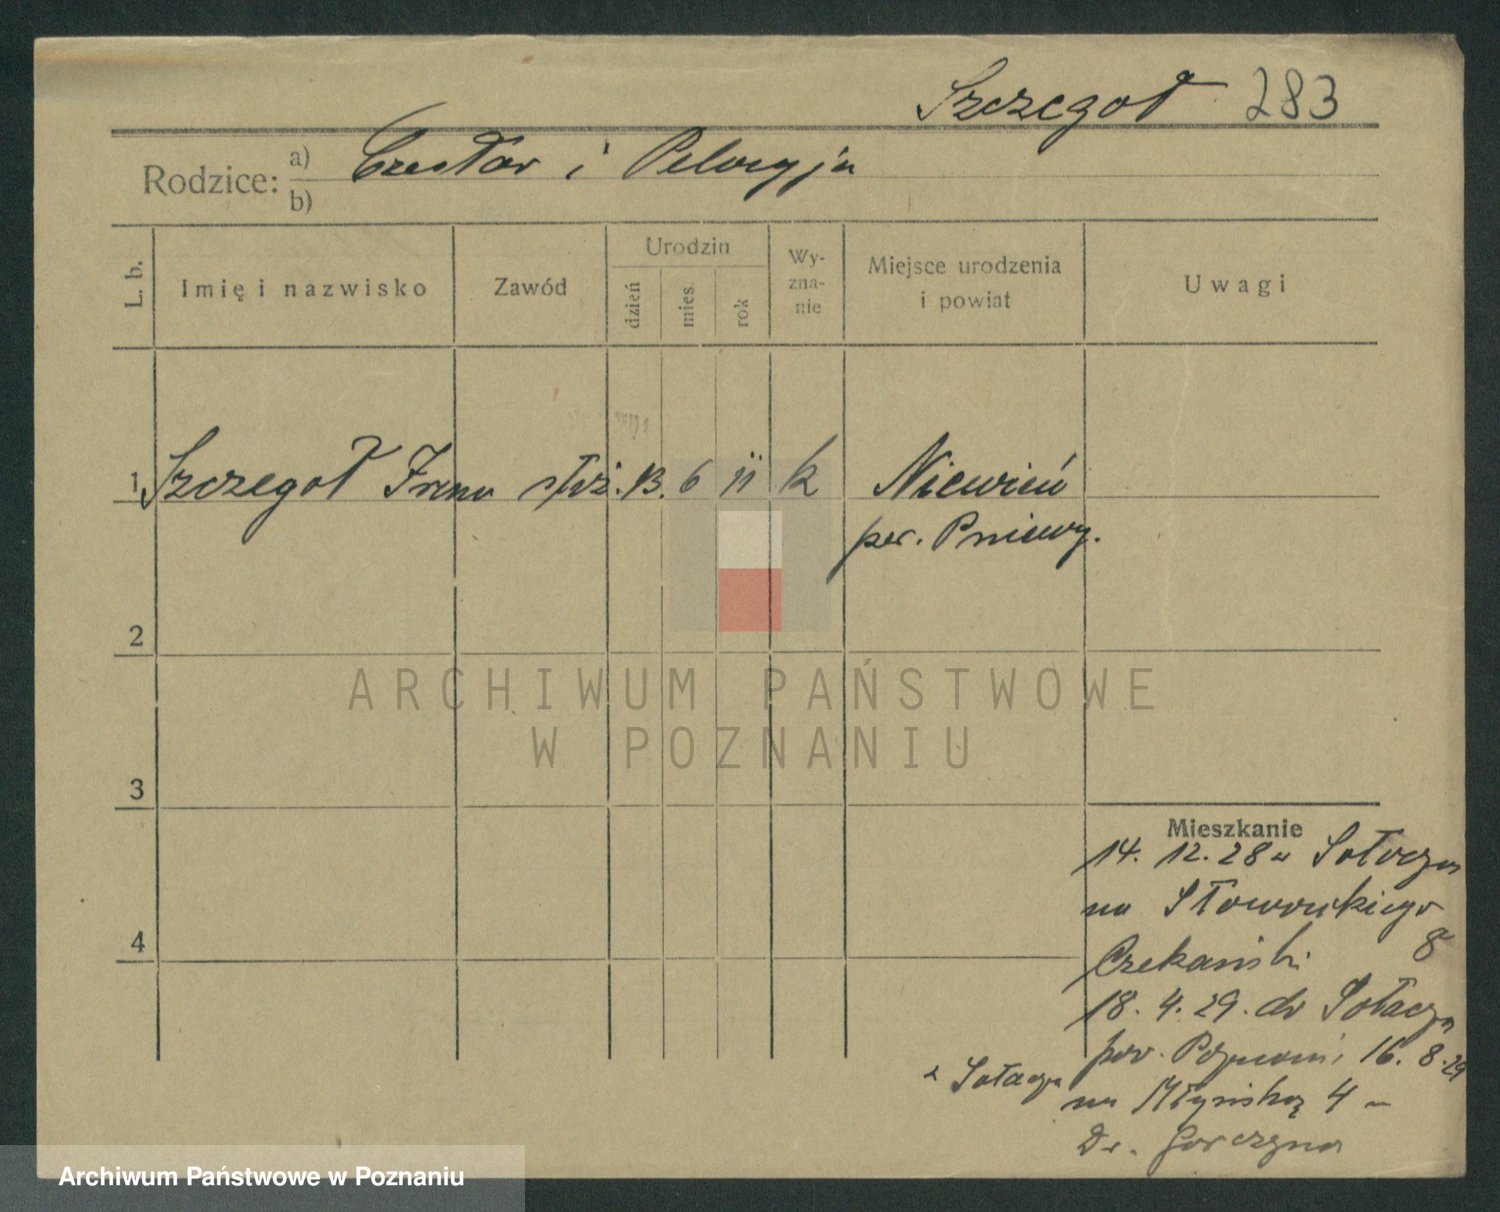 Szczegoł 283
Rodzice: a) Czesław i Pelagja
b)
L. b.
Imię i nazwisko
Zawód
Urodzin
dzień
mies.
rok
Wy-
zna-
nie
Miejsce urodzenia
i powiat
Uwagi
1 Szczegoł Irena służ. 13. 6 11 k Niewierz
pow. Pniewy.
2
ARCHIWUM PAŃSTWOWE
W POZNANIU
3
Mieszkanie
14. 12. 28 z Sołacza
na Słowackiego
8
4
Czekański
18. 4. 29. do Sołacza
pow. Poznań 16. 8. 29
z Sołacza
na Młyńską 4 -
Dr. Gorczyna
Archiwum Państwowe w Poznaniu